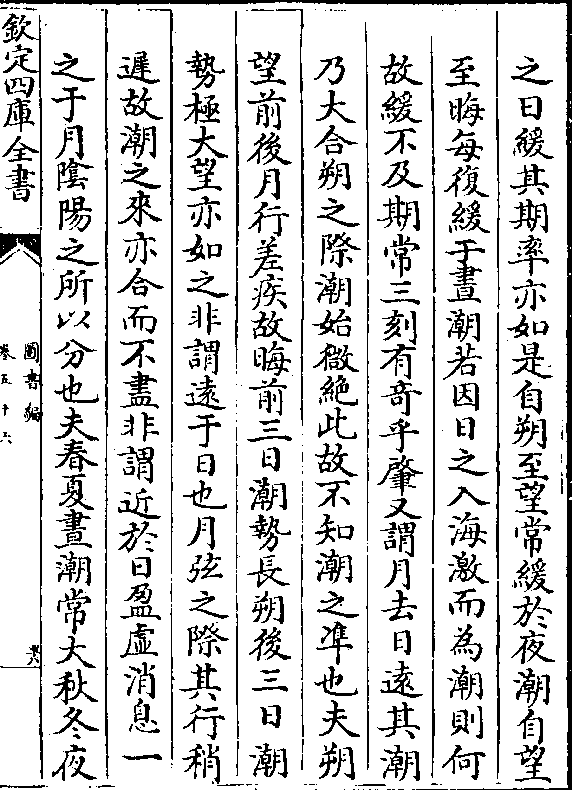 之日緩其期率亦如是自朔至望常緩於夜潮自望
至晦每復緩于晝潮若因日之入海激而為潮則何
故緩不及期常三刻有奇乎肇又謂月去日遠其潮
乃大合朔之際潮始微絶此故不知潮之準也夫朔
望前後月行差疾故晦前三日潮勢長朔後三日潮
勢極大望亦如之非謂遠于日也月弦之際其行稍
遲故潮之來亦合而不盡非謂近於日盈虚消息一
之于月陰陽之所以分也夫春夏晝潮常大秋冬夜
欽定四庫全書
圖書編
卷五十六